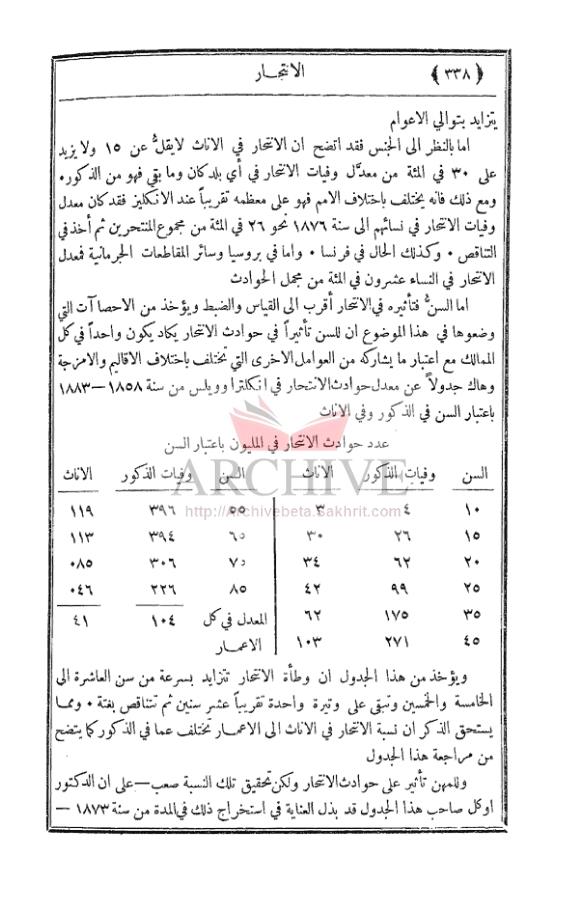 ﴿ ٣٣٨ ﴾ الانتحار
يتزايد بتوالي الاعوام
اما بالنظر الى الجنس فقد اتضح ان الانتحار في الاناث لايقلُّ عن ١٥ ولا يزيد
على ٣٠ في المئة من معدَّل وفيات الانتحار في أي بلد كان وما بقي فهو من الذكور٠
ومع ذلك فانه يختلف باختلاف الامم فهو على معظمه تقريباً عند الانكليز فقد كان معدل
وفيات الانتحار في نسائهم الى سنة ١٨٧٦ نحو ٢٦ في المئة من مجموع المنتحرين ثم أخذ في
التناقص ٠ وكذلك الحال في فرنسا ٠ واما في بروسيا وسائر المقاطعات الجرمانية فمعدل
الانتحار في النساء عشرون في المئة من مجمل الحوادث
اما السنُّ فتأثيره في الانتحار أقرب الى القياس والضبط ويؤخذ من الاحصاآت التي
وضعوها في هذا الموضوع ان للسن تأثيراً في حوادث الانتحار يكاد يكون واحداً في كل
الممالك مع اعتبار ما يشاركه من العوامل الاخرى التي تختلف باختلاف الاقاليم والامزجة
وهاك جدولاً عن معدل حوادث الانتحار في انكلترا وويلس من سنة ١٨٥٨ — ١٨٨٣
باعتبار السن في الذكور وفي الاناث
عدد حوادث الانتحار في المليون باعتبار السن
ARCHIVE
http://Archivebeta.Sakhrit.com
السن وفيات الذكور الاناث السن وفيات الذكور الاناث
١٠ ٤ ٣ ٥٥ ٣٩٦ ١١٩
١٥ ٢٦ ٣٠ ٦٥ ٣٩٤ ١١٣
٢٠ ٦٢ ٣٤ ٧٥ ٣٠٦ ٠٨٥
٢٥ ٩٩ ٤٢ ٨٥ ٢٢٦ ٠٤٦
٣٥ ١٧٥ ٦٢ المعدل في كل ١٠٤ ٤١
٤٥ ٢٧١ ١٠٣ الاعمار
ويؤخذ من هذا الجدول ان وطأة الانتحار تتزايد بسرعة من سن العاشرة الى
الخامسة والخمسين وتبقى على وتيرة واحدة تقريباً عشر سنين ثم تتناقص بغتة ٠ ومما
يستحق الذكر ان نسبة الانتحار في الاناث الى الاعمار تختلف عما في الذكور كما يتضح
من مراجعة هذا الجدول
وللمهن تأثير على حوادث الانتحار ولكن تحقيق تلك النسبة صعب — على ان الدكتور
اوكل صاحب هذا الجدول قد بذل العناية في استخراج ذلك في المدة من سنة ١٨٧٣ —